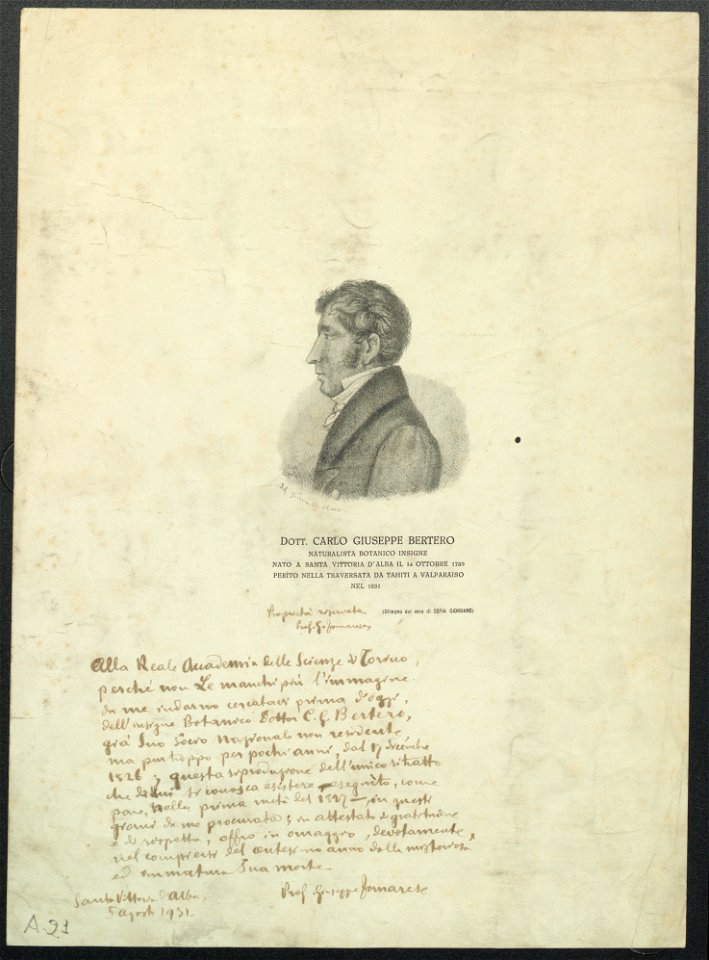 DOTT. CARLO GIUSEPPE BERTERO
NATURALISTA BOTANICO INSIGNE
NATO A SANTA VITTORIA D'ALBA IL 14 OTTOBRE 1789
PERÍTO NELLA TRAVERSATA DA TAHITI A VALPARAISO
NEL 1831
Proprietà riservata
(Disegno dal vero di SOFIA GIORDANO)
Prof. G.
Alla Reale Accademia delle Scienze di Torino,
perché non Le manchi più l'immagine
da me indarno cercata prima d'oggi,
dell'insigne Botanico Dottor C. G. Bertero,
già Suo Socio Nazionale non residente,
ma purtroppo per pochi anni, dal 17 dicembre
1826; questa riproduzione dell'unico ritratto
che di Lui si conosca esistere — eseguito, come
pare, nella prima metà del 1827 —, in questi
giorni da me procurata; in attestato di gratitudine
e di rispetto, offro in omaggio, devotamente,
nel compiersi del centesimo anno dalla misteriosa
ed immatura Sua morte.
Santa Vittoria d'Alba,
Prof. Giuseppe
5 agosto 1931.
A.91